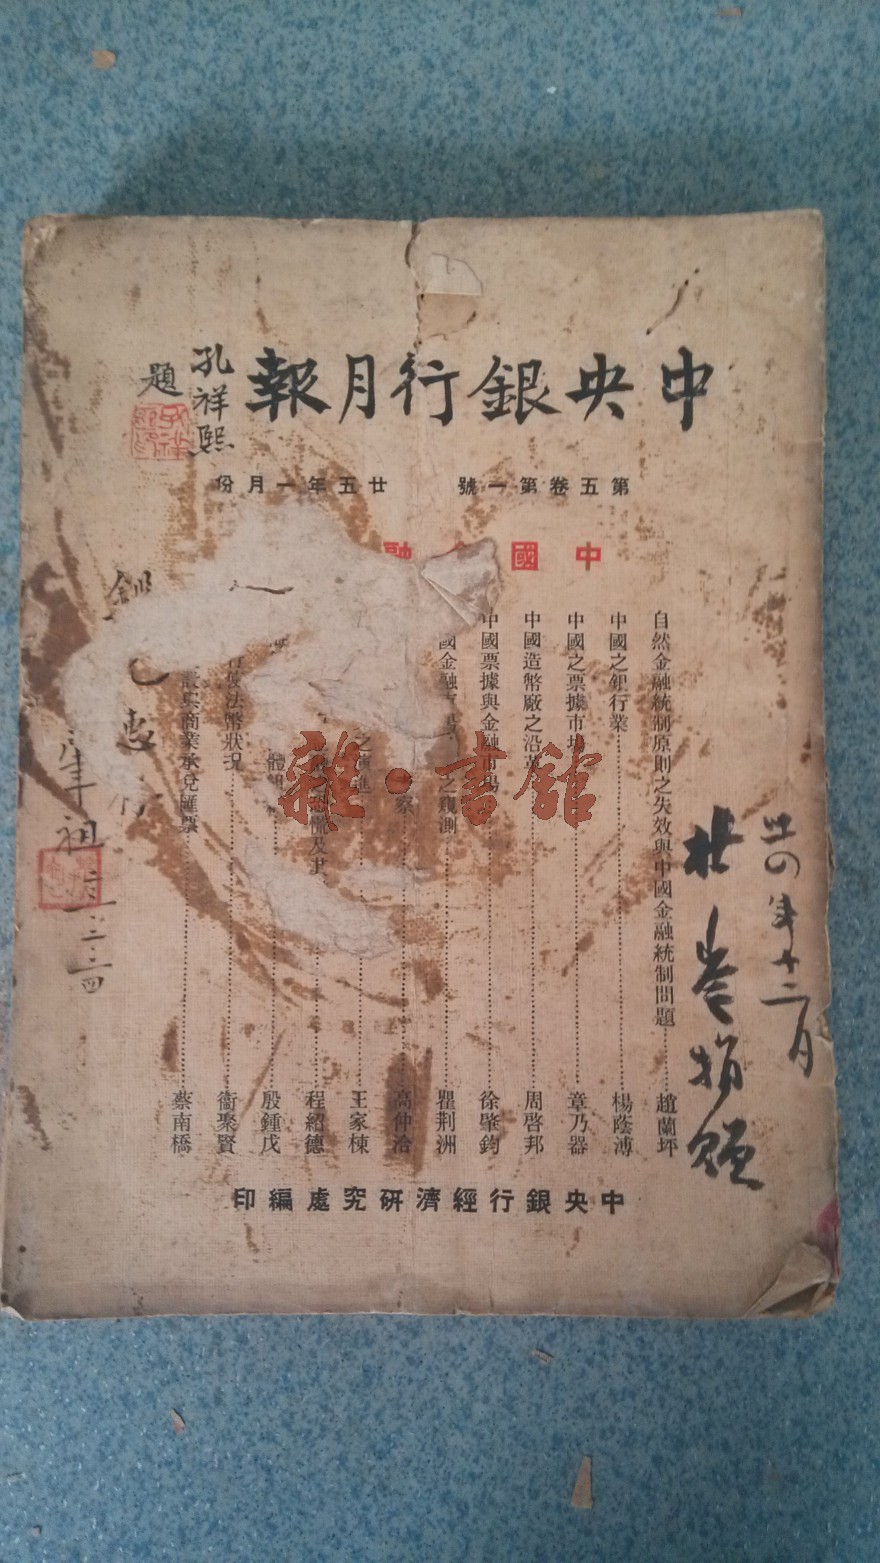 中央銀行月報
孔祥熙
題
第五卷第一號 廿五年一月份
中國 融
自然金融統制原則之失效與中國金融統制問題 趙蘭坪
中國之銀行業 楊蔭溥
中國之票據市場 章乃器
中國造幣廠之沿革 周啓邦
中國票據與金融市場 徐肇鈞
國金融 之觀測 瞿荆洲
察 高仲洽
之演進 王家棟
恐慌及 程紹德
體 殷鍾戊
法幣狀況 衞聚賢
商業承兌匯票 蔡南橋
中央銀行經濟研究處編印
年十二月
捐
惠
祖
雜·書館